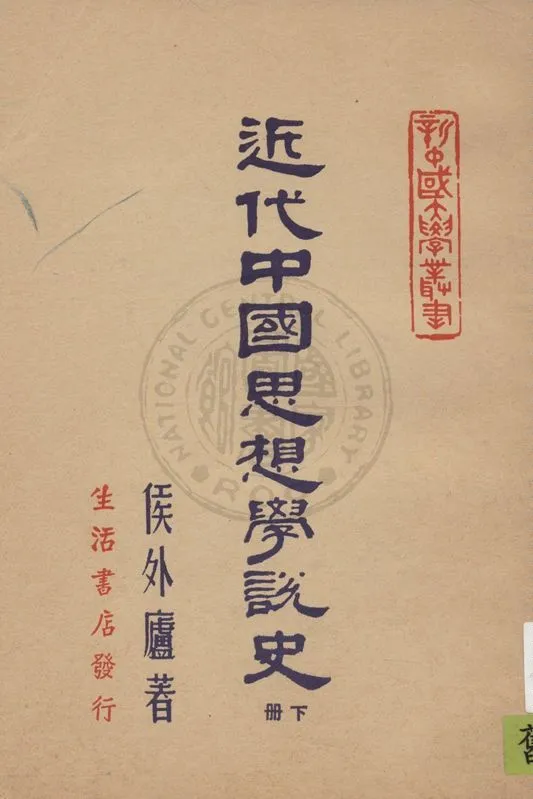 新中國大學叢書
近代中國思想學說史
下册
侯外廬著
生活書店發行
NATIONAL CENTRAL LIBRARY
舊